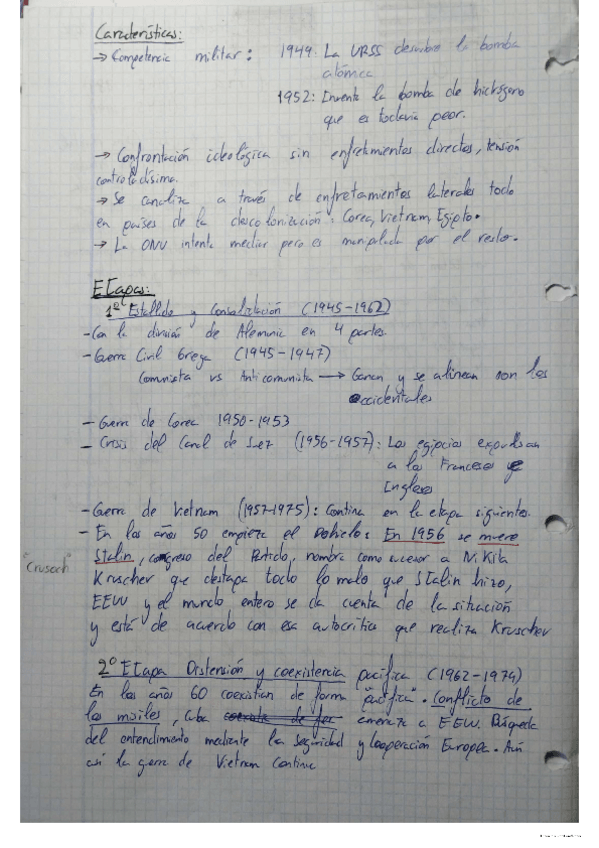 Características:
→ Competencia militar: 1949: La URSS descubre la bomba
atómica
1952: Inventa la bomba de hidrógeno
que es todavía peor.
→ Confrontación ideológica sin enfretamientos directos, tensión
controladísima.
→ Se canaliza a través de enfretamientos laterales todo
en países de la descolonización: Corea, Vietnam, Egipto.
→ La ONU intenta mediar pero es manipulada por el resto.
Etapas:
1º Estallido y Consolidación (1945-1962)
- Con la división de Alemania en 4 partes
- Guerra Civil Griega (1945-1947)
Comunista vs Anticomunista → Ganan y se alinean con los
occidentales
- Guerra de Corea 1950-1953
- Crisis del Canal de Suez (1956-1957): Los egipcios expulsan
a los Franceses e
Ingleses
- Guerra de Vietnam (1957-1975): Continua en la etapa siguiente.
- En los años 50 empieza el : En 1956 se muere
Stalin, congreso del Partido, nombra como sucesor a Nikita
"Crusoch"
Kruscher que destapa todo lo malo que Stalin hizo,
EEUU y el mundo entero se da cuenta de la situación
y está de acuerdo con esa autocrítica que realiza Kruschev
2º Etapa Distensión y coexistencia pacífica (1962-1974)
En los años 60 coexistían de forma "pacífica". Conflicto de
los misiles, Cuba amenaza a EEUU. Búsqueda
del entendimiento mediante la Seguridad y Cooperación Europea. Aún
así la guerra de Vietnam Continua